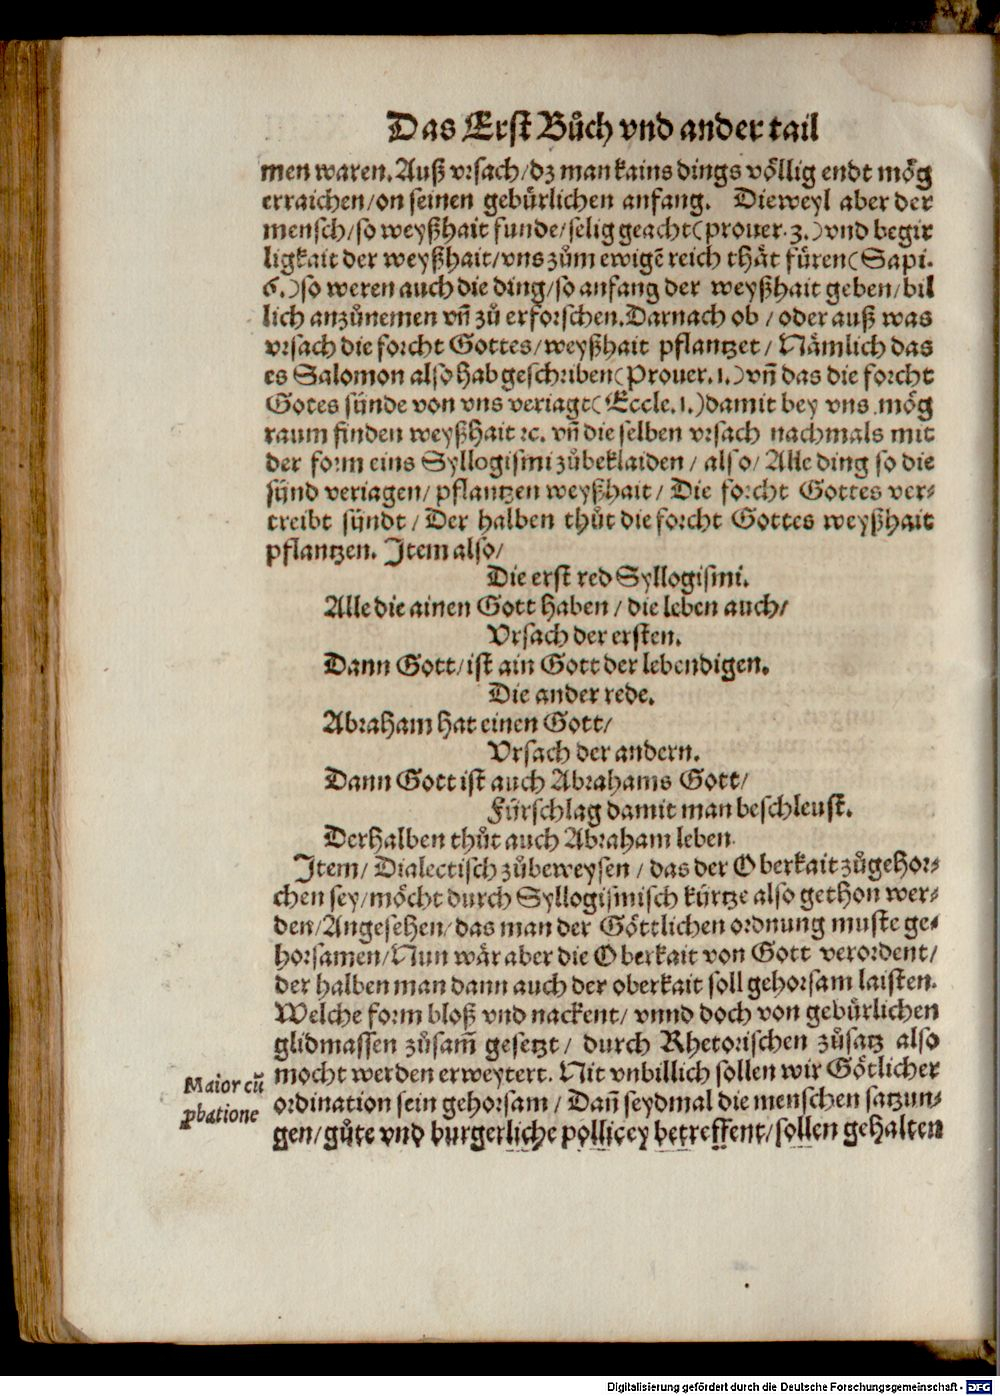 Das Erst Bůch vnd ander tail
men waren. Auß vrsach/ dz man kains dings völlig endt mög
erraichen/ on seinen gebürlichen anfang. Dieweyl aber der
mensch/ so weyßhait funde/ selig geacht (prouer. 3.) vnd begir
ligkait der weyßhait/ vns zům ewigē reich thät füren (Sapi.
6.) so weren auch die ding/ so anfang der weyßhait geben/ bil
lich anzůnemen vñ zů erforschen. Darnach ob / oder auß was
vrsach die forcht Gottes/ weyßhait pflantzet / Nämlich das
es Salomon also hab geschriben (Prouer. 1.) vñ das die forcht
Gotes sünde von vns veriagt (Eccle. 1.) damit bey vns mög
raum finden weyßhait ꝛc. vñ die selben vrsach nachmals mit
der form eins Syllogismi zůbeklaiden / also/ Alle ding so die
sünd veriagen/ pflantzen weyßhait/ Die forcht Gottes ver⸗
treibt sündt / Der halben thůt die forcht Gottes weyßhait
pflantzen. Item also/
Die erst red Syllogismi.
Alle die ainen Gott haben / die leben auch/
Vrsach der ersten.
Dann Gott/ ist ain Gott der lebendigen.
Die ander rede.
Abraham hat einen Gott/
Vrsach der andern.
Dann Gott ist auch Abrahams Gott/
Fürschlag damit man beschleust.
Derhalben thůt auch Abraham leben.
Item/ Dialectisch zůbeweysen / das der Oberkait zůgehor⸗
chen sey/ möcht durch Syllogismisch kürtze also gethon wer⸗
den/ Angesehen/ das man der Göttlichen ordnung muste ge⸗
horsamen/ Nun wär aber die Oberkait von Gott verordent/
der halben man dann auch der oberkait soll gehorsam laisten.
Welche form bloß vnd nackent/ vnnd doch von gebürlichen
glidmassen zůsam̄ gesetzt / durch Rhetorischen zůsatz also
mocht werden erweytert. Nit vnbillich sollen wir Götlicher
Maior cū
ꝓbatione
ordination sein gehorsam / Dañ seydmal die menschen satzun⸗
gen/ gůte vnd burgerliche pollicey betreffent/ sollen gehalten
Digitalisierung gefördert durch die Deutsche Forschungsgemeinschaft - DFG